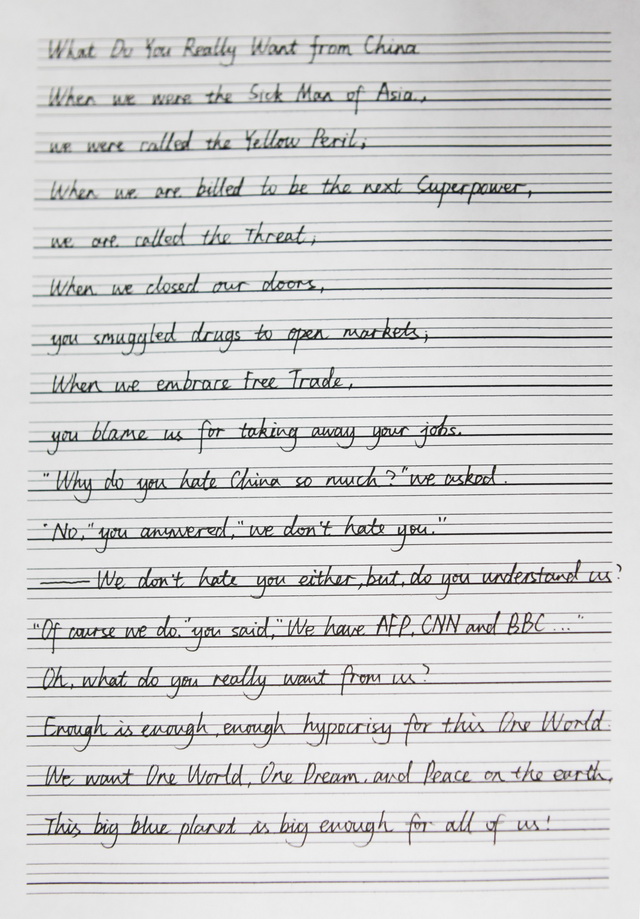 What Do You Really Want from China
When we were the Sick Man of Asia,
we were called the Yellow Peril;
When we are billed to be the next Superpower,
we are called the Threat;
When we closed our doors,
you smuggled drugs to open markets;
When we embrace Free Trade,
you blame us for taking away your jobs.
"Why do you hate China so much?" we asked.
"No," you answered, "we don't hate you."
—— We don't hate you either, but, do you understand us?
"Of course we do." you said, "We have AFP, CNN and BBC ..."
Oh, what do you really want from us?
Enough is enough, enough hypocrisy for this One World.
We want One World, One Dream, and Peace on the earth.
This big blue planet is big enough for all of us!